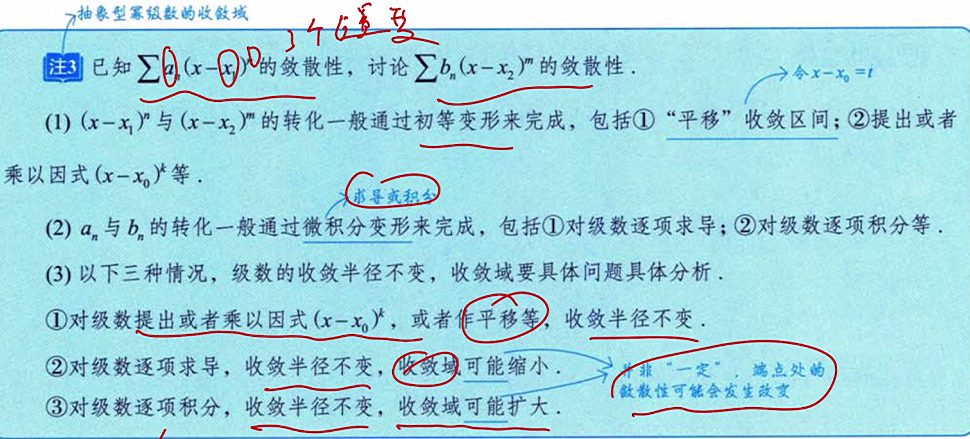 抽象型幂级数的收敛域
3个位置变
注3 已知∑aₙ(x−x₁)ⁿ的敛散性，讨论∑bₙ(x−x₂)ᵐ的敛散性．
令x−x₀=t
(1) (x−x₁)ⁿ与(x−x₂)ᵐ的转化一般通过初等变形来完成，包括①“平移”收敛区间；②提出或者
乘以因式(x−x₀)ᵏ等．
求导或积分
(2) aₙ与bₙ的转化一般通过微积分变形来完成，包括①对级数逐项求导；②对级数逐项积分等．
(3) 以下三种情况，级数的收敛半径不变，收敛域要具体问题具体分析．
①对级数提出或者乘以因式(x−x₀)ᵏ，或者作平移等，收敛半径不变．
②对级数逐项求导，收敛半径不变，收敛域可能缩小．
并非“一定”．端点处的
敛散性可能会发生改变
③对级数逐项积分，收敛半径不变，收敛域可能扩大．